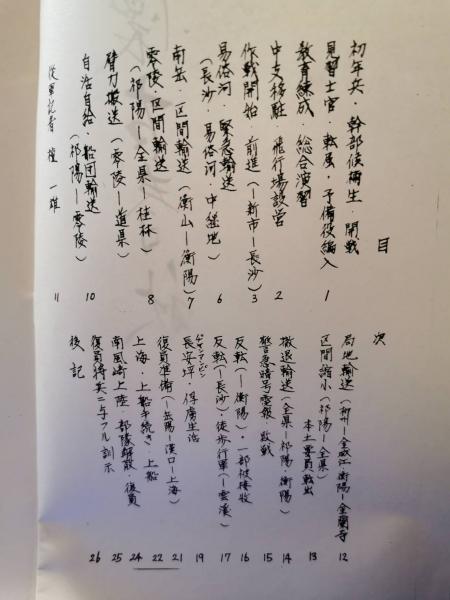 目次
初年兵・幹部候補生・開戦
見習士官・転属・予備役編入 1
教育練成 総合演習
中支移駐・飛行場設営 2
作戦開始 前進(―新市―長沙) 3
易俗河・緊急輸送
(長沙・易俗河・中継地) 6
南岳・区間輸送(衡山―衡陽) 7
零陵・区間輸送
(祁陽―全県―桂林) 8
臂力搬送(零陵―道県)
自活自給・船団輸送
(祁陽―零陵) 10
従軍記者 檀 一雄 11
局地輸送(柳州―全県 衡陽―金蘭寺 12
区間縮小(祁陽―全県)
本土要員転出 13
撤退輸送(全県―祁陽・衡陽) 14
警急暗号電報・敗戦 15
反転(―衡陽)・一部被接収 16
反転(―長沙)・徒歩行軍(―雲渓) 17
長安坪・俘虜生活 19
復員準備(―岳陽―漢口―上海) 21
上海・上船手続き・上船 22 24
南風崎上陸・部隊解散・復員 25
復員将兵ニ与フル訓示 26
後記